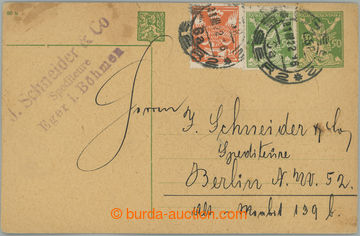 J. Schneider & Co
Spediteure
Eger i. Böhmen
Herrn
J. Schneider & Co,
Spediteure
Berlin N.W. 52.
Alt-Moabit 139 b.
© burda-auction.com